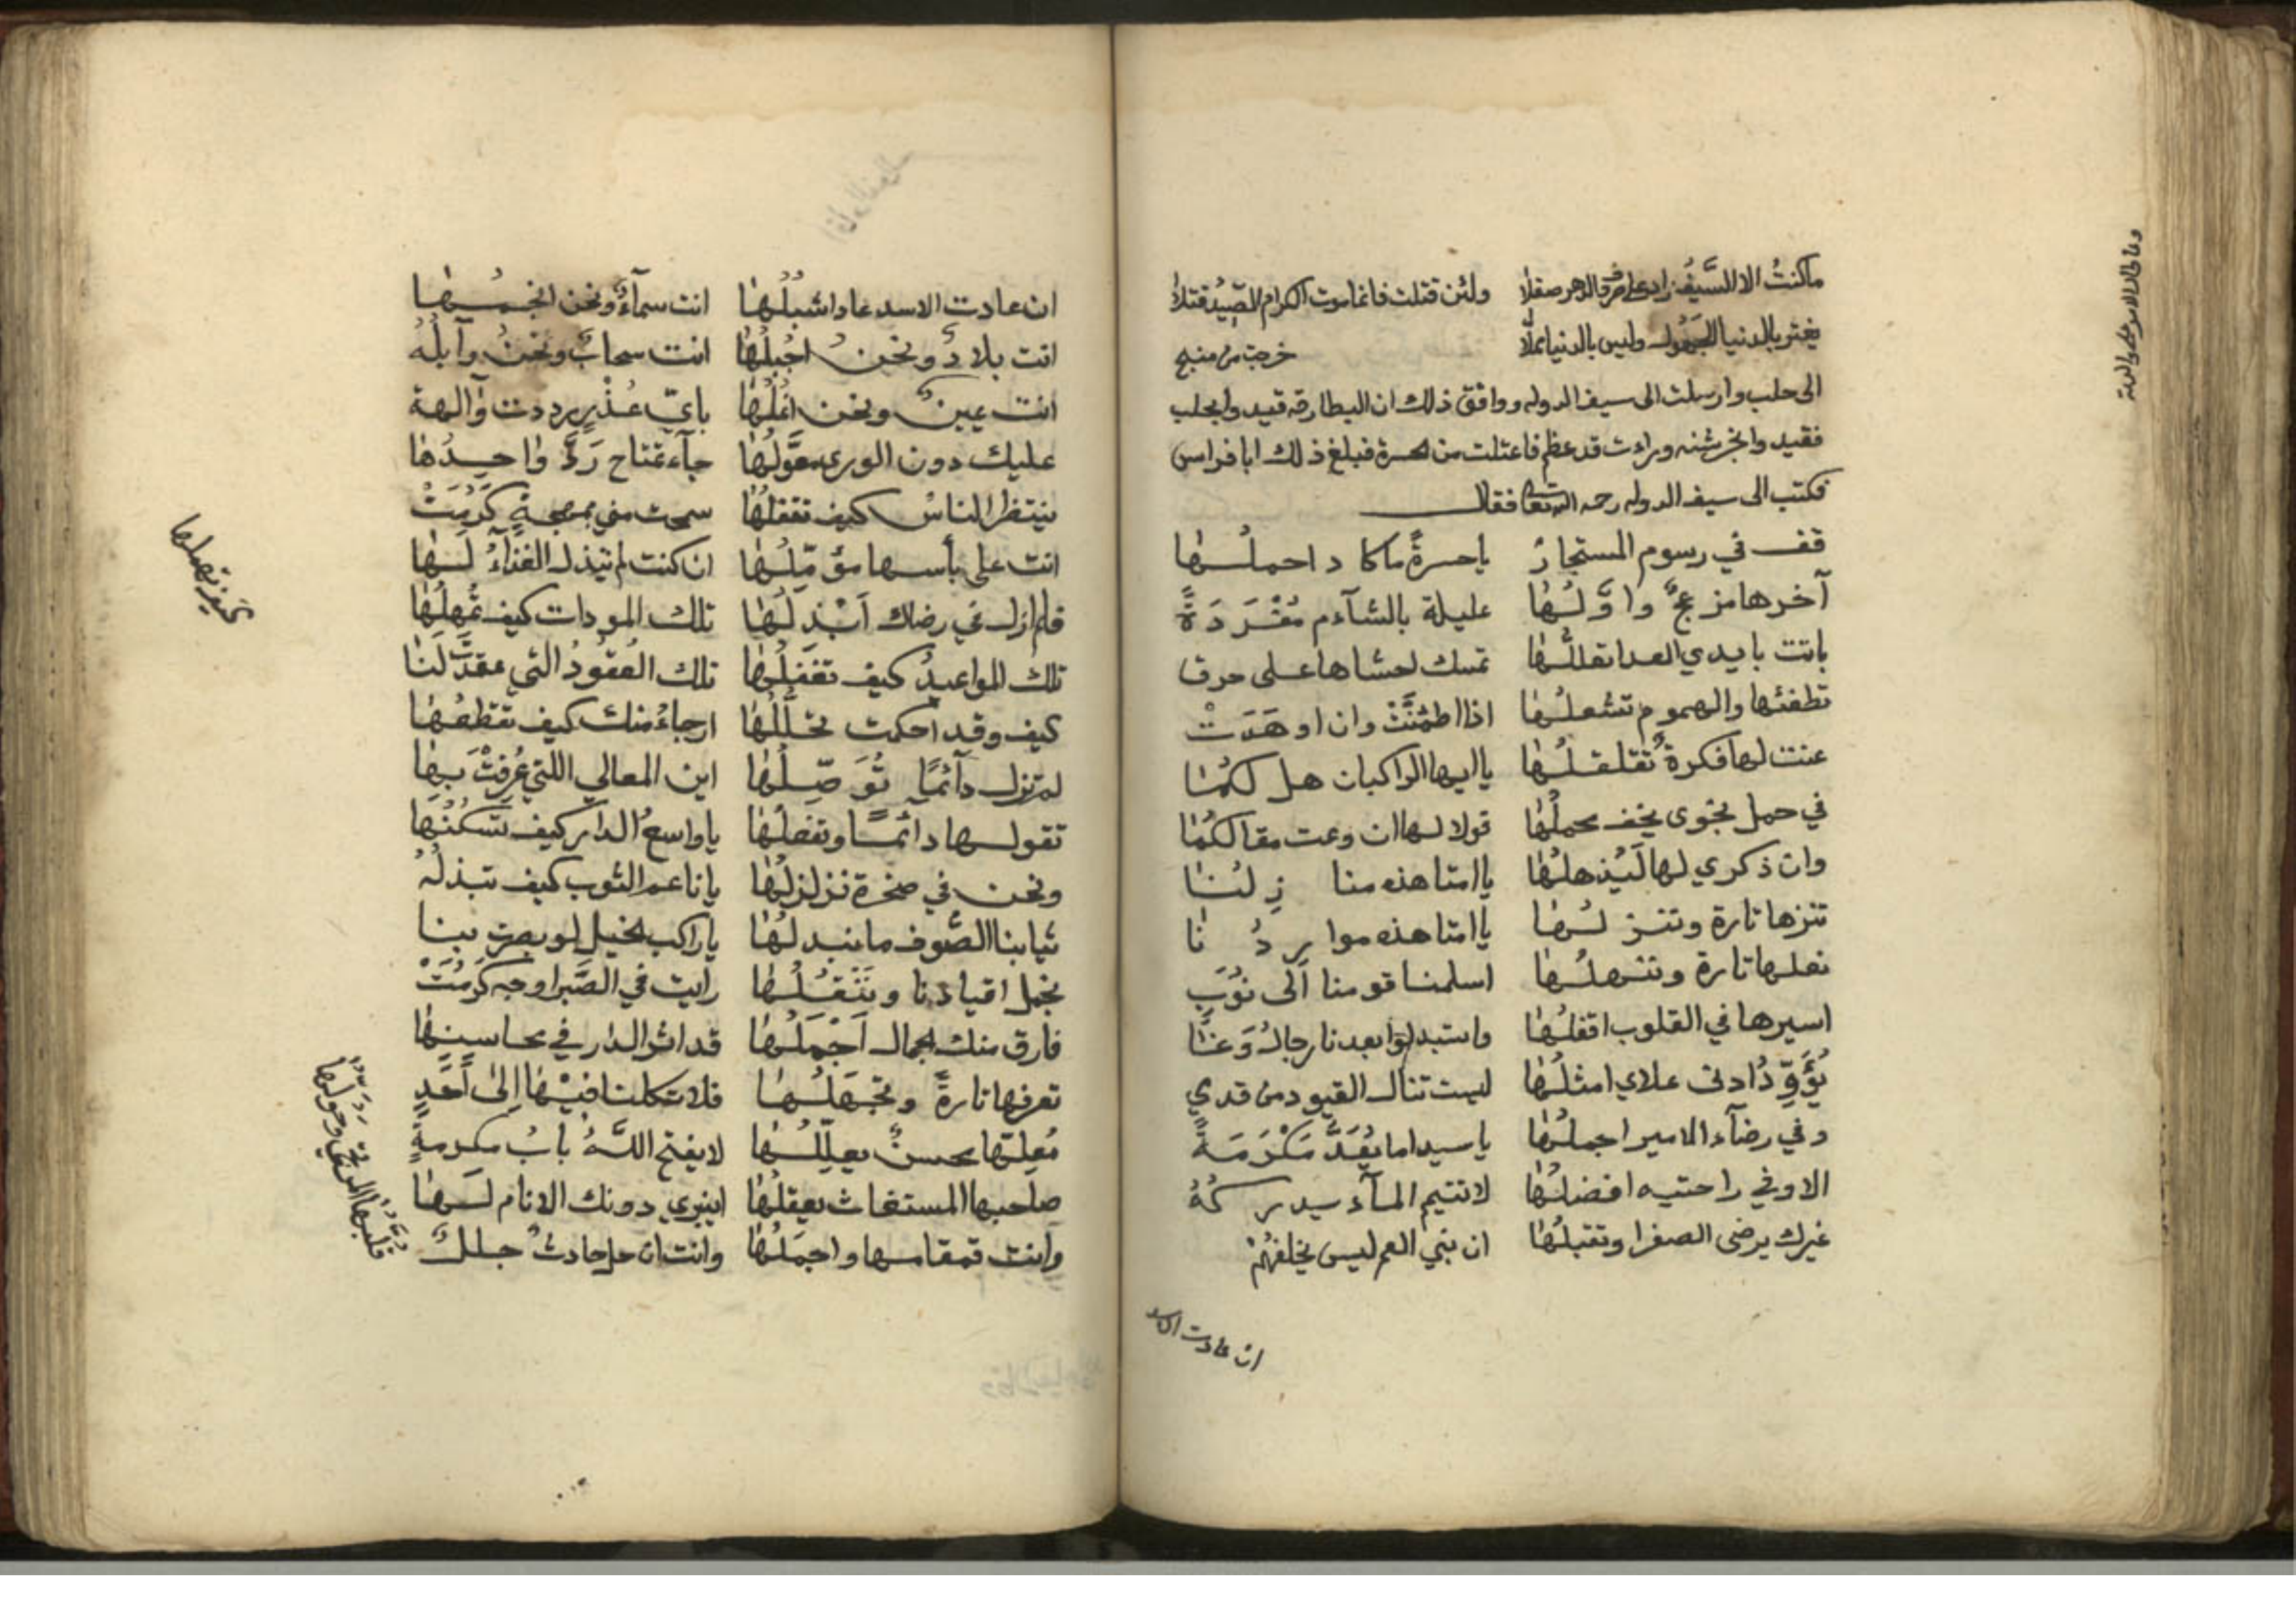 ماكنتُ الا السَّيفُ زاد على صرف الدهر صقلا ولئن قتلت فانما موت الكرام الصِّيْدُ قتلا
يغتر بالدنيا الجَهُول وليس بالدنيا مملّا خرجت من منبج
الى حلب وارسلت الى سيف الدوله ووافق ذلك ان البطارقه قيدوا بحلب
فقيدوا بخرشنه وراءت قد عظم فاعتلت من الحسرة فبلغ ذلك ابا فراس
فكتب الى سيف الدوله رحمه الله تعا فقال
قف في رسوم المستجار ياحسرةً ماكا د احملُها
آخرها مزعجٌ واوَّلُها عليلة بالشآم مُفْرَدَةً
باتت بايدي العدا تعللُّها تمسك احشاها على حرق
تطفئها والهموم تشعلُها اذا اطمئنَّتْ وان او هَدَتْ
عنت لها فكرةٌ تقلقلُها يا ايها الراكبان هل لكُما
في حمل نجوى يخف محملُها قولا لها ان وعت مقالكُما
وان ذكري لها لَيُذهلُها يا امتا هذه منا زِلُنا
تنزها تارة وتنزلُها يا امتا هذه موا رِدُنا
نعلها تارة وتنهلُها اسلمنا قومنا الى نُوَبٍ
اسيرها في القلوب اقفلُها واستبدلوا بعدنا رجالُ وَغَنًا
يُوَدِّدُ ادنى علاي امثلُها ليست تنال القيود من قدي
وفي رضآء الامير اجملُها ياسيدا ما يُعَدُّ مَكْرَمَةً
الا وفي راحتيه افضلُها لاتتيم المآء يدركهُ
غيرك يرضى الصغرا وتقبلُها ان بني العم ليس يخلفهُمْ
ان عادت الاسد
ان عادت الاسد عاد اشبلُها انت سمآءٌ ونحن انجمُها
انت بلادٌ ونحنُ اجْبلُها انت سحابٌ ونحنُ وآبلُهُ
انت عينٌ ونحن انملُها بايّ عُذْرٍ رددت وآالهة
عليك دون الورى معوَّلُها جآءت تمتاح رَدَّ واحدُها
ينتظر الناسُ كيف تقفلُها سمحت مني بمهجةٍ كَرُمَتْ
انت على بأسها مؤمّلُها ان كنت لم تبذل الفداءَ لَها
فلم ازل في رضاك اَبْذلُها تلك المودات كيف تُهملُها
تلك المواعيدُ كيف تغفلُها تلك العُقودُ التي عقدَّتَ لَنا
كيف وقد احكمت تحلّلُها ارحاءُ منك كيف تقطعُها
لم تزل دآئمًا تُوَصِّلُها اين المعالي اللتي عُرِفْتَ بِها
تقولها دائمًا وتفعلُها ياواسعُ الدار كيف تسكنُها
ونحن في صخرة نزلزلُها ياناعم الثوب كيف تبذلُهُ
ثيابنا الصُّوف مانبدلُها ياراكب الخيل لو بصرت بنا
نحمل اقيادنا ونَنْقُلُها رايت في الصَّبر اوجه كرُمَتْ
فارق منك الجمال اَجْمَلُها قد اثر الدار في محاسنها
تعرفها تارةً وتجهَلُها فلا تكلنا فيْها اِلى اَحَدٍ
مُعلّها محسنٌ يعلّلُها لا يفتح اللّهُ بابُ مكرمةٍ
صاحبها المستغاث يعقلُها اينبري دونك الانام لَها
وانت قمقامها واجمَلُها وانت ان حل حادثٌ جللٌ
كيف تهملها